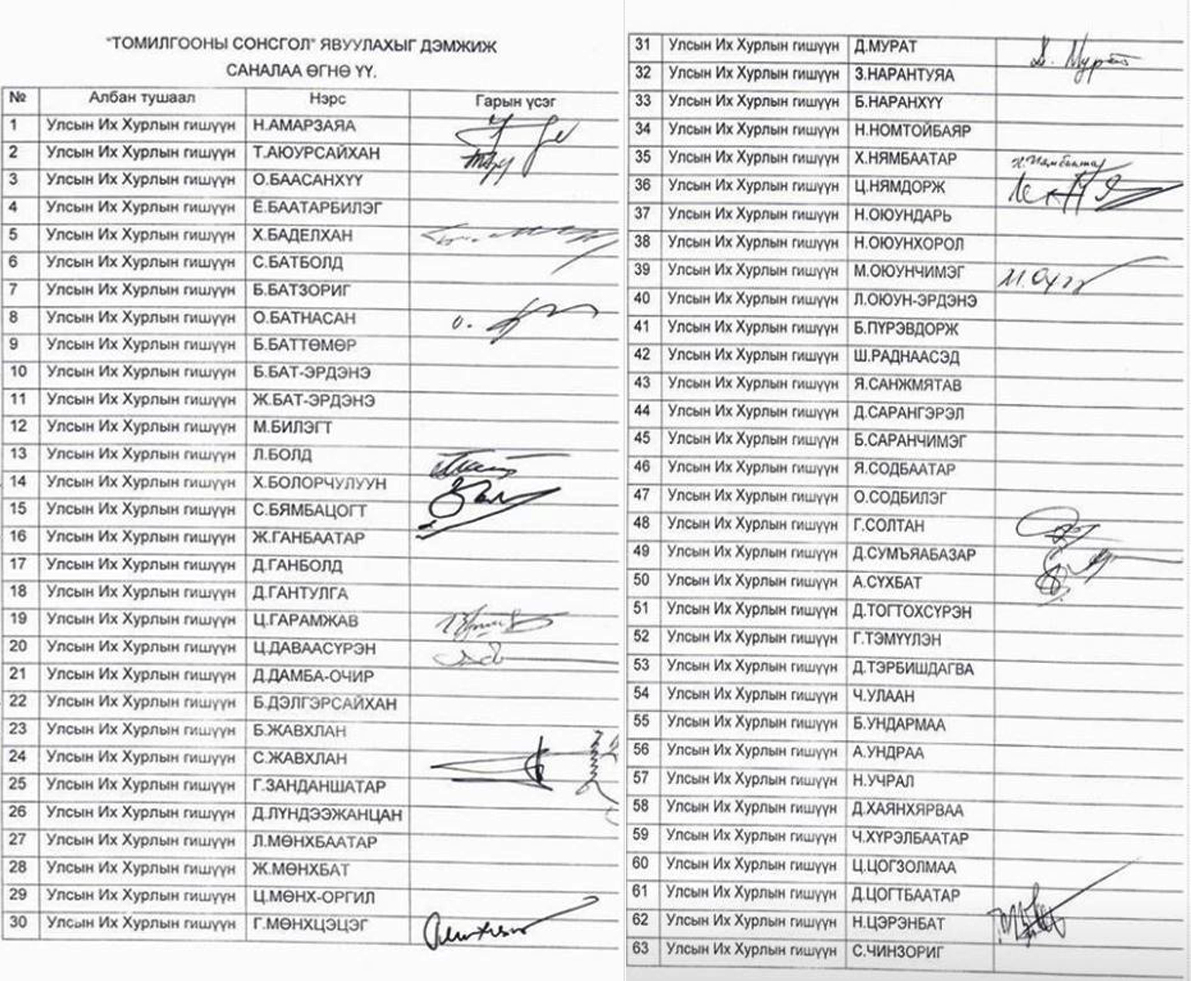 "ТОМИЛГООНЫ СОНСГОЛ" ЯВУУЛАХЫГ ДЭМЖИЖ
САНАЛАА ӨГНӨ ҮҮ.
№ Албан тушаал Нэрс Гарын үсэг
1 Улсын Их Хурлын гишүүн Н.АМАРЗАЯА
2 Улсын Их Хурлын гишүүн Т.АЮУРСАЙХАН
3 Улсын Их Хурлын гишүүн О.БААСАНХҮҮ
4 Улсын Их Хурлын гишүүн Ё.БААТАРБИЛЭГ
5 Улсын Их Хурлын гишүүн Х.БАДЕЛХАН
6 Улсын Их Хурлын гишүүн С.БАТБОЛД
7 Улсын Их Хурлын гишүүн Б.БАТЗОРИГ
8 Улсын Их Хурлын гишүүн О.БАТНАСАН
9 Улсын Их Хурлын гишүүн Б.БАТТӨМӨР
10 Улсын Их Хурлын гишүүн Б.БАТ-ЭРДЭНЭ
11 Улсын Их Хурлын гишүүн Ж.БАТ-ЭРДЭНЭ
12 Улсын Их Хурлын гишүүн М.БИЛЭГТ
13 Улсын Их Хурлын гишүүн Л.БОЛД
14 Улсын Их Хурлын гишүүн Х.БОЛОРЧУЛУУН
15 Улсын Их Хурлын гишүүн С.БЯМБАЦОГТ
16 Улсын Их Хурлын гишүүн Ж.ГАНБААТАР
17 Улсын Их Хурлын гишүүн Д.ГАНБОЛД
18 Улсын Их Хурлын гишүүн Д.ГАНТУЛГА
19 Улсын Их Хурлын гишүүн Ц.ГАРАМЖАВ
20 Улсын Их Хурлын гишүүн Ц.ДАВААСҮРЭН
21 Улсын Их Хурлын гишүүн Д.ДАМБА-ОЧИР
22 Улсын Их Хурлын гишүүн Б.ДЭЛГЭРСАЙХАН
23 Улсын Их Хурлын гишүүн Б.ЖАВХЛАН
24 Улсын Их Хурлын гишүүн С.ЖАВХЛАН
25 Улсын Их Хурлын гишүүн Г.ЗАНДАНШАТАР
26 Улсын Их Хурлын гишүүн Д.ЛҮНДЭЭЖАНЦАН
27 Улсын Их Хурлын гишүүн Л.МӨНХБААТАР
28 Улсын Их Хурлын гишүүн Ж.МӨНХБАТ
29 Улсын Их Хурлын гишүүн Ц.МӨНХ-ОРГИЛ
30 Улсын Их Хурлын гишүүн Г.МӨНХЦЭЦЭГ
31 Улсын Их Хурлын гишүүн Д.МУРАТ
32 Улсын Их Хурлын гишүүн З.НАРАНТУЯА
33 Улсын Их Хурлын гишүүн Б.НАРАНХҮҮ
34 Улсын Их Хурлын гишүүн Н.НОМТОЙБАЯР
35 Улсын Их Хурлын гишүүн Х.НЯМБААТАР
36 Улсын Их Хурлын гишүүн Ц.НЯМДОРЖ
37 Улсын Их Хурлын гишүүн Н.ОЮУНДАРЬ
38 Улсын Их Хурлын гишүүн Н.ОЮУНХОРОЛ
39 Улсын Их Хурлын гишүүн М.ОЮУНЧИМЭГ
40 Улсын Их Хурлын гишүүн Л.ОЮУН-ЭРДЭНЭ
41 Улсын Их Хурлын гишүүн Б.ПҮРЭВДОРЖ
42 Улсын Их Хурлын гишүүн Ш.РАДНААСЭД
43 Улсын Их Хурлын гишүүн Я.САНЖМЯТАВ
44 Улсын Их Хурлын гишүүн Д.САРАНГЭРЭЛ
45 Улсын Их Хурлын гишүүн Б.САРАНЧИМЭГ
46 Улсын Их Хурлын гишүүн Я.СОДБААТАР
47 Улсын Их Хурлын гишүүн О.СОДБИЛЭГ
48 Улсын Их Хурлын гишүүн Г.СОЛТАН
49 Улсын Их Хурлын гишүүн Д.СУМЪЯАБАЗАР
50 Улсын Их Хурлын гишүүн А.СҮХБАТ
51 Улсын Их Хурлын гишүүн Д.ТОГТОХСҮРЭН
52 Улсын Их Хурлын гишүүн Г.ТЭМҮҮЛЭН
53 Улсын Их Хурлын гишүүн Д.ТЭРБИШДАГВА
54 Улсын Их Хурлын гишүүн Ч.УЛААН
55 Улсын Их Хурлын гишүүн Б.УНДАРМАА
56 Улсын Их Хурлын гишүүн А.УНДРАА
57 Улсын Их Хурлын гишүүн Н.УЧРАЛ
58 Улсын Их Хурлын гишүүн Д.ХАЯНХЯРВАА
59 Улсын Их Хурлын гишүүн Ч.ХҮРЭЛБААТАР
60 Улсын Их Хурлын гишүүн Ц.ЦОГЗОЛМАА
61 Улсын Их Хурлын гишүүн Д.ЦОГТБААТАР
62 Улсын Их Хурлын гишүүн Н.ЦЭРЭНБАТ
63 Улсын Их Хурлын гишүүн С.ЧИНЗОРИГ